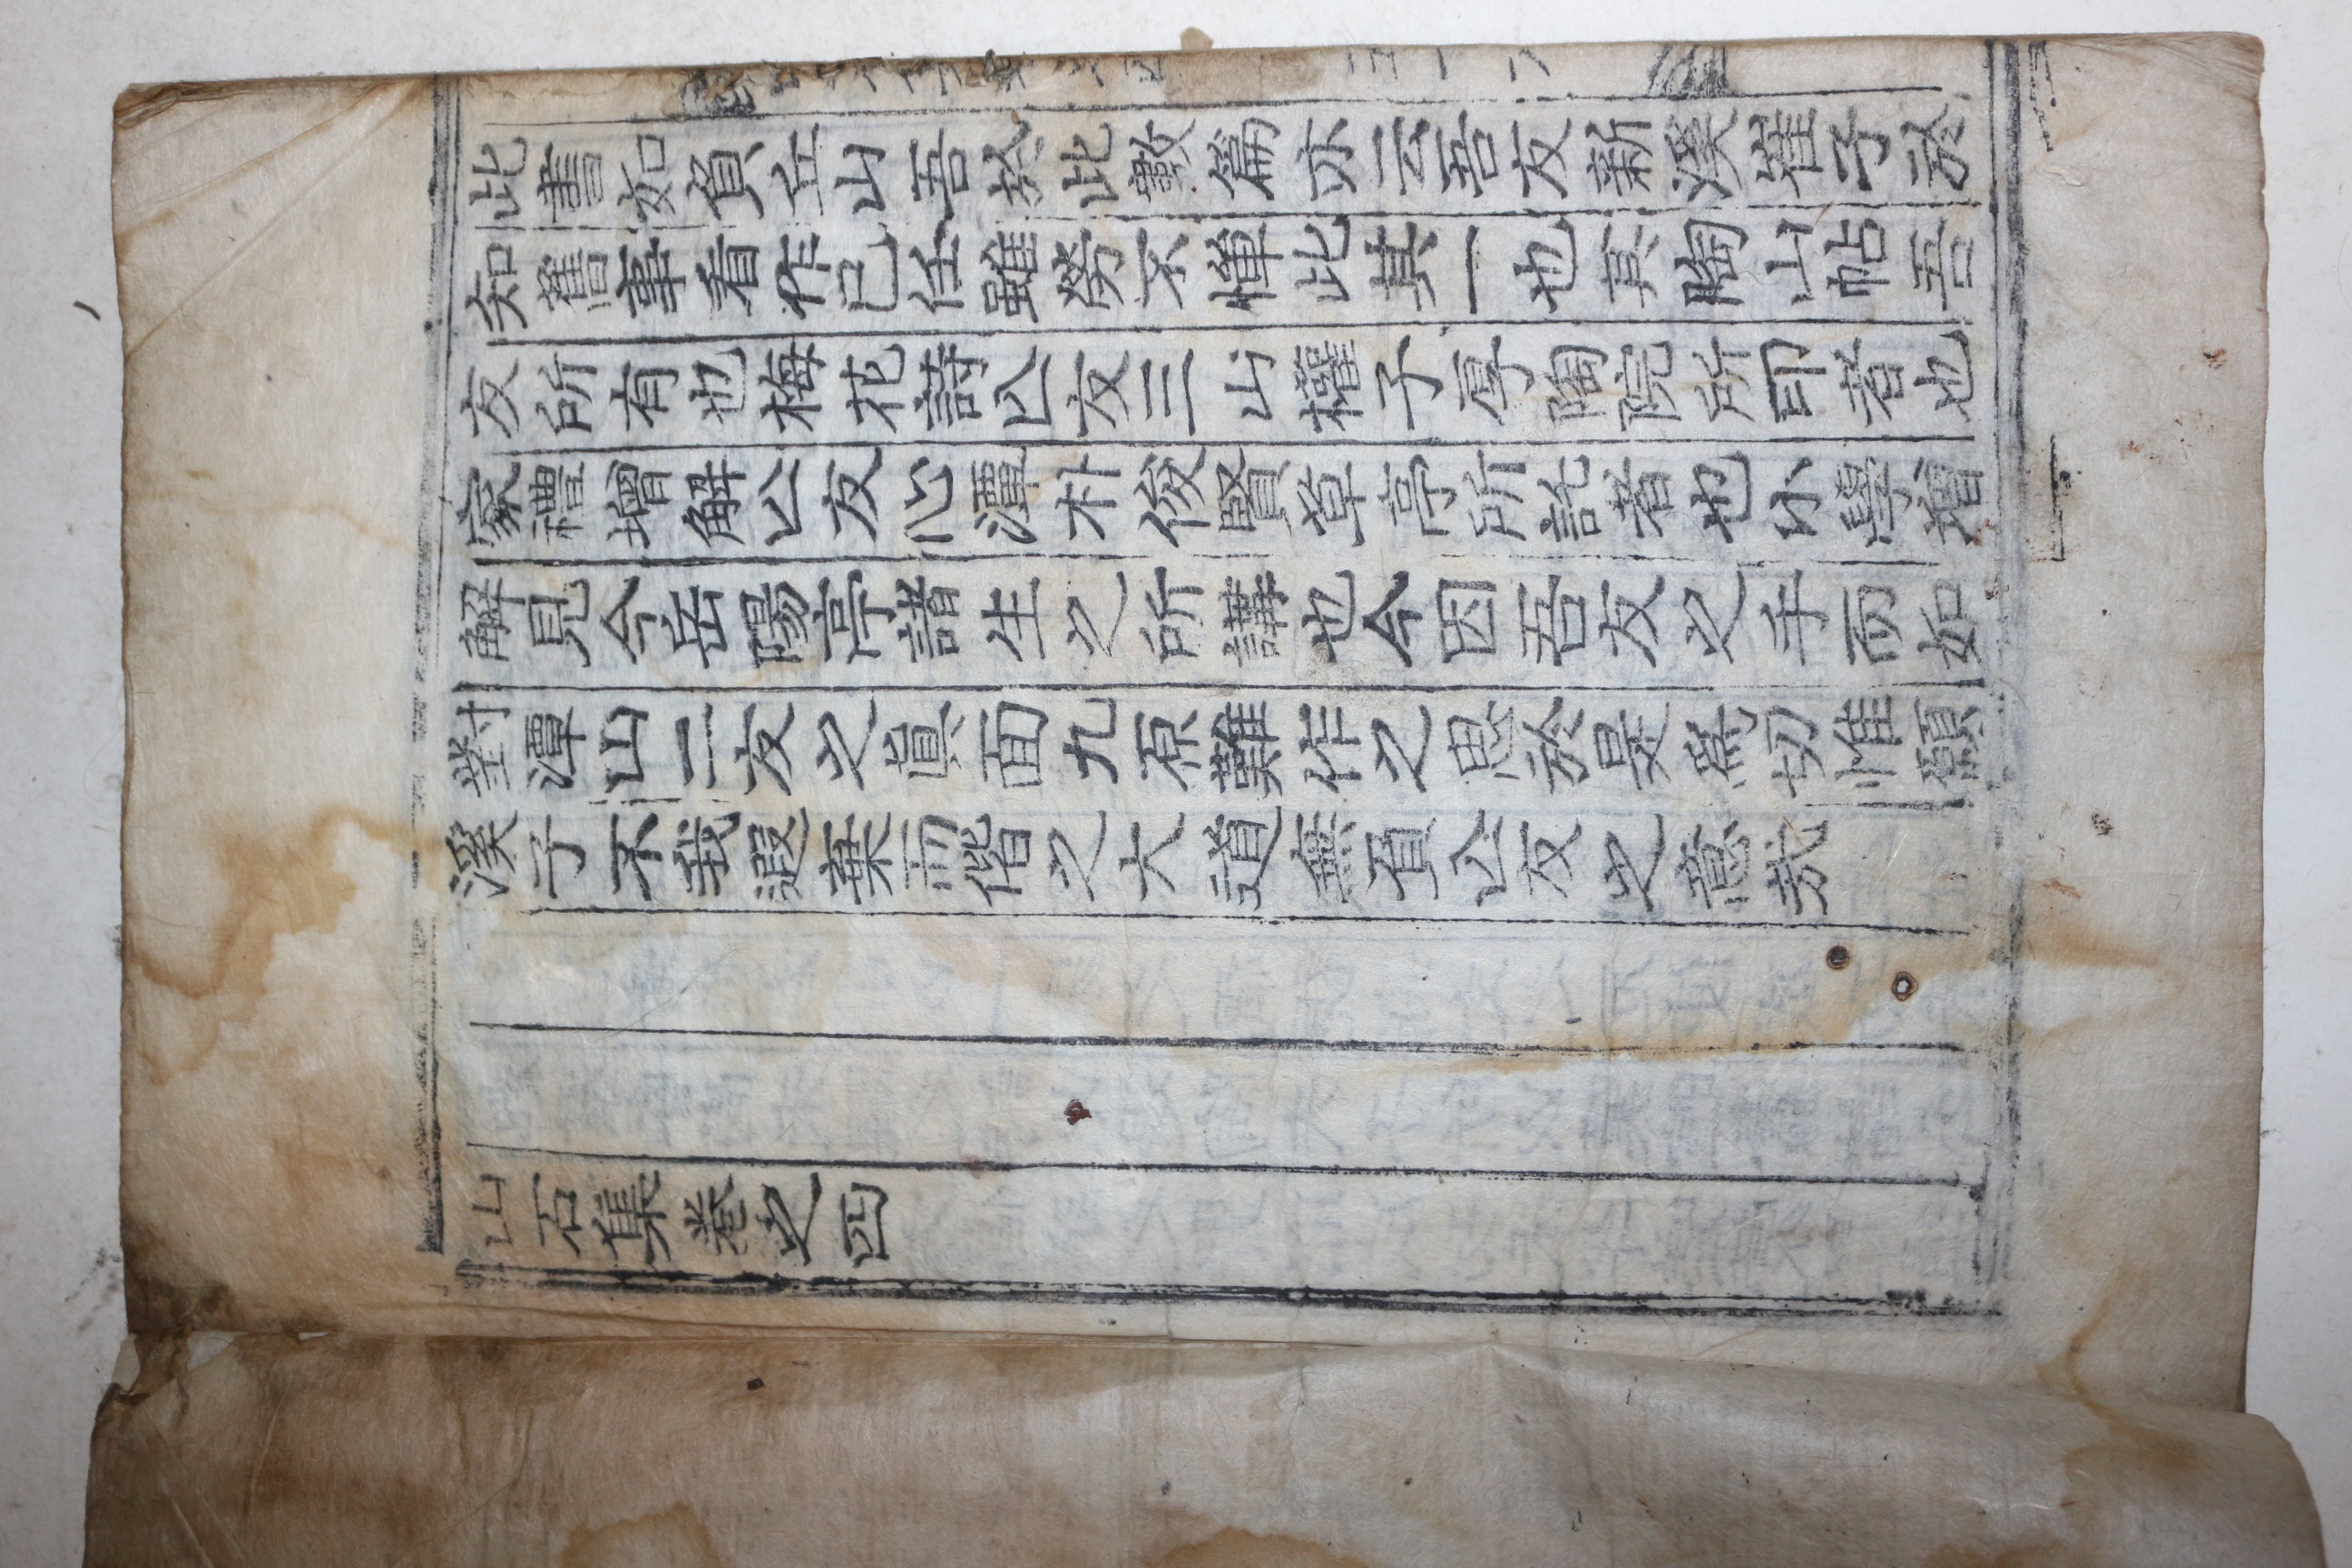 此書如負丘山吾於此數篇亦云吾友新溪崔子敬
知舊事看作己任雖勞不憚此其一也其陶山帖吾
友所有也梅花詩亾友三山權子厚陶院所印者也
家禮增解亾友心潭朴俊賢草亭所託者也小學增
解見今岳陽亭諸生之所講也今因吾友之手而如
對潭山二友之眞面九原難作之思於是爲切惟願
溪子不我遐棄而偕之大道無負亾友之意哉
山石集卷之四